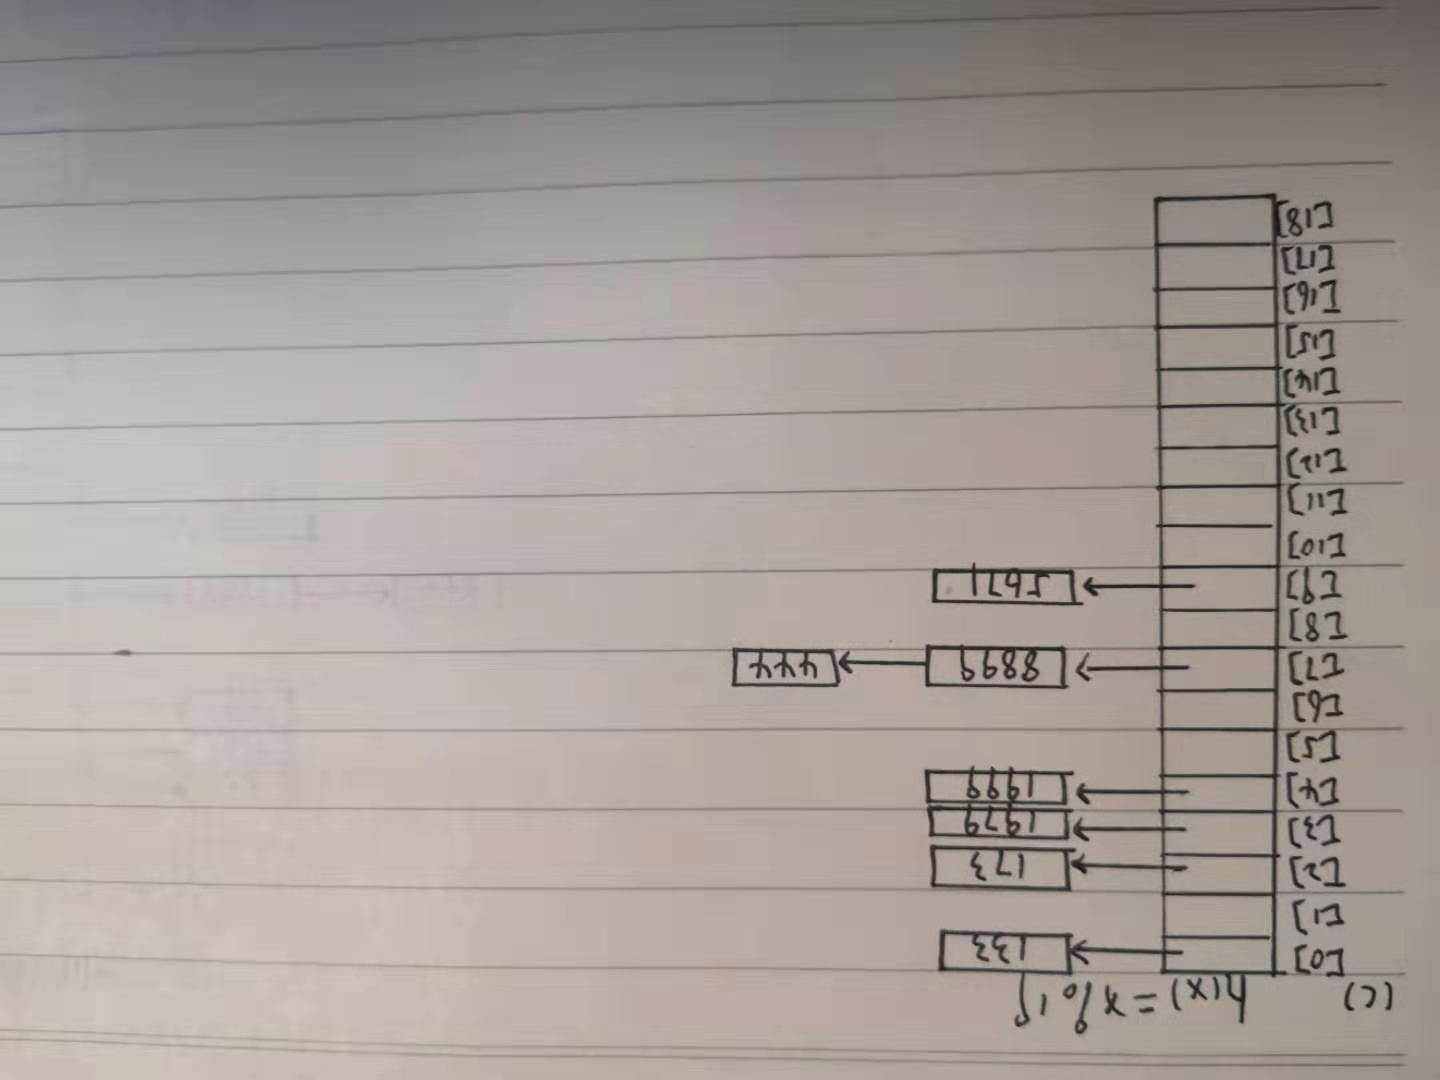 (c) h(x) = x % 19
[0] 133
[1]
[2] 173
[3] 1979
[4] 1999
[5]
[6]
[7] 8899 444
[8]
[9] 5671
[10]
[11]
[12]
[13]
[14]
[15]
[16]
[17]
[18]